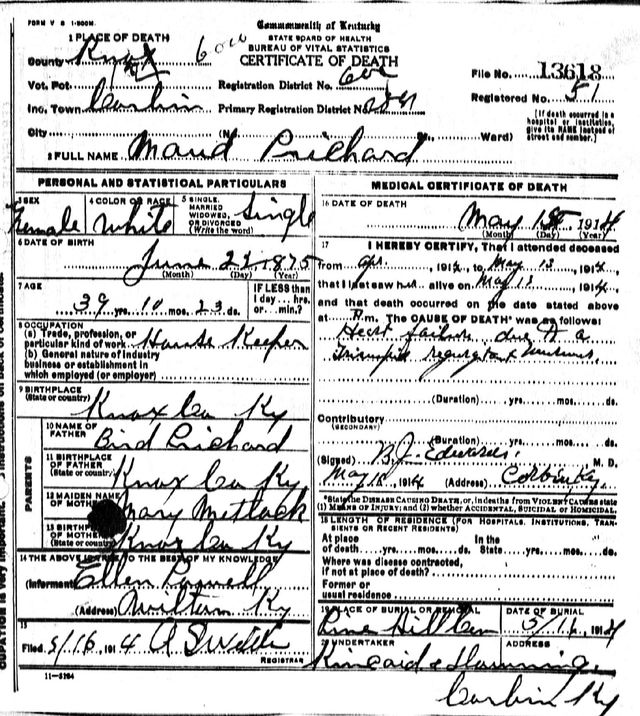 FORM V S 1-500M.
Commonwealth of Kentucky
STATE BOARD OF HEALTH
BUREAU OF VITAL STATISTICS
CERTIFICATE OF DEATH
1 PLACE OF DEATH
County Knox
Vot. Pct
Registration District No.
File No. 13618
Inc. Town Corbin
Primary Registration District No.
Registered No. 51
City (No. Ward)
[If death occurred in a hospital or institution, give its NAME instead of street and number.]
2 FULL NAME Maud Prichard
PERSONAL AND STATISTICAL PARTICULARS
3 SEX Female
4 COLOR OR RACE White
5 SINGLE, MARRIED WIDOWED, OR DIVORCED (Write the word) Single
6 DATE OF BIRTH
June 1875
(Month) (Day) (Year)
7 AGE
39 yrs. 10 mos. 23 ds.
IF LESS than 1 day... hrs. or... min.?
8 OCCUPATION
(a) Trade, profession, or particular kind of work House Keeper
(b) General nature of industry business or establishment in which employed (or employer)
9 BIRTHPLACE
(State or country)
Knox Co Ky
PARENTS
10 NAME OF FATHER Bird Prichard
11 BIRTHPLACE OF FATHER (State or country) Knox Co Ky.
12 MAIDEN NAME OF MOTHER Mary
13 BIRTHPLACE OF MOTHER (State or country) Knox Co Ky
14 THE ABOVE IS TRUE TO THE BEST OF MY KNOWLEDGE
(Informant) Ellen
(Address) Ky
15
Filed 5/16, 1914
REGISTRAR
11-3184
MEDICAL CERTIFICATE OF DEATH
16 DATE OF DEATH
May 1914
(Month) (Day) (Year)
17 I HEREBY CERTIFY, That I attended deceased
from Apr. , 1914, to May 13 , 1914,
that I last saw her alive on May 13 , 1914,
and that death occurred on the date stated above
at P.m. The CAUSE OF DEATH* was as follows:
Heart failure due to a
(Duration) yrs. mos. ds.
Contributory
(SECONDARY)
(Duration) yrs. mos. ds.
(Signed) Edwards, M. D.
May , 1914 (Address) Corbin Ky.
*State the DISEASE CAUSING DEATH, or, in deaths from VIOLENT CAUSES state (1) MEANS OF INJURY; and (2) whether ACCIDENTAL, SUICIDAL or HOMICIDAL.
18 LENGTH OF RESIDENCE (FOR HOSPITALS, INSTITUTIONS, TRANSIENTS OR RECENT RESIDENTS)
At place of death....yrs....mos....ds. In the State....yrs....mos....ds.
Where was disease contracted, if not at place of death?
Former or usual residence
19 PLACE OF BURIAL OR REMOVAL
Pine Hill Cem
DATE OF BURIAL
5/16, 1914
20 UNDERTAKER
ADDRESS
Kincaid &
Corbin Ky